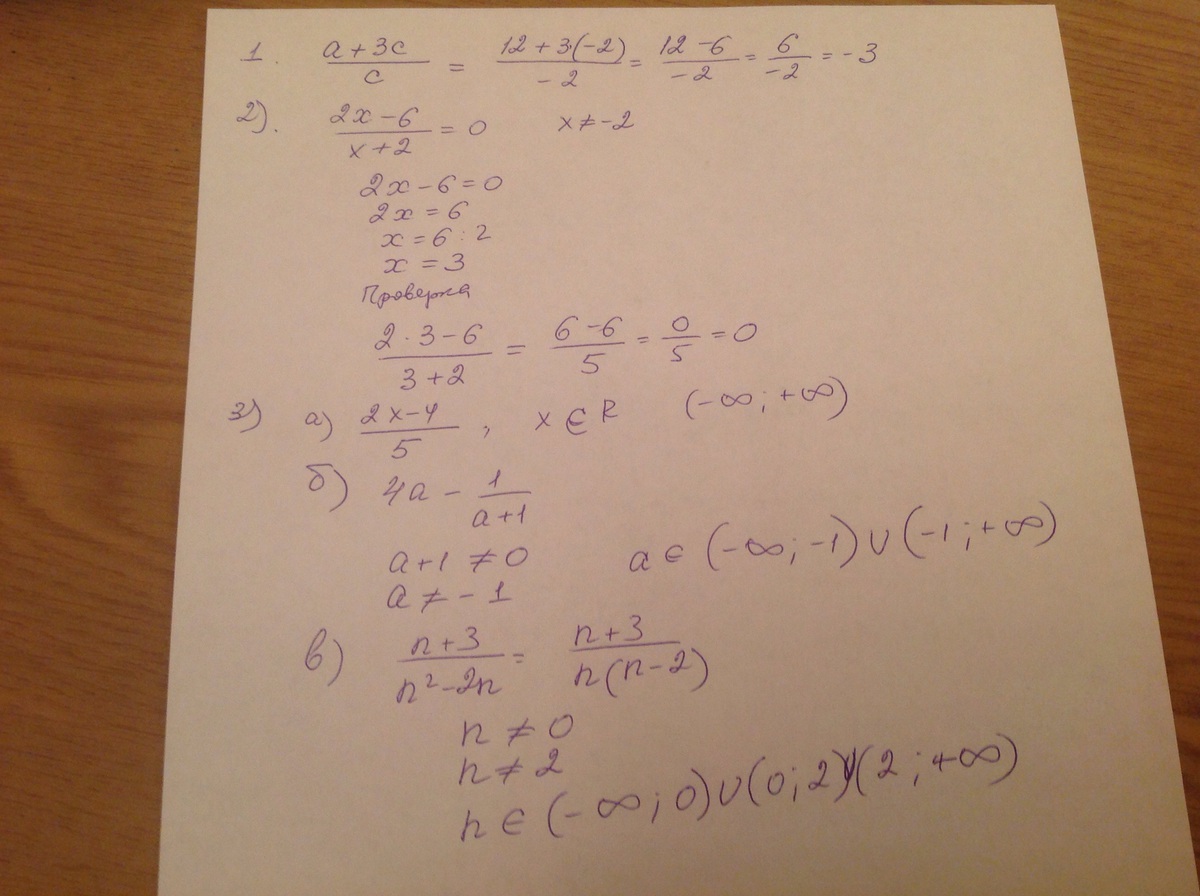 1. (a + 3c)/c = (12 + 3·(-2))/(-2) = (12 - 6)/(-2) = 6/(-2) = -3
2). (2x - 6)/(x + 2) = 0 x ≠ -2
2x - 6 = 0
2x = 6
x = 6 : 2
x = 3
Проверка
(2 · 3 - 6)/(3 + 2) = (6 - 6)/5 = 0/5 = 0
3) а) (2x - 4)/5 , x ∈ R (-∞; +∞)
б) 4a - 1/(a + 1)
a + 1 ≠ 0
a ≠ -1 a ∈ (-∞; -1) ∪ (-1; +∞)
в) (n + 3)/(n² - 2n) = (n + 3)/(n(n - 2))
n ≠ 0
n ≠ 2
n ∈ (-∞; 0) ∪ (0; 2) ∪ (2; +∞)